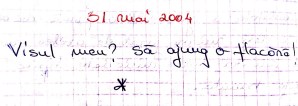 31 mai 2004
Visul meu? să ajung o flacără!